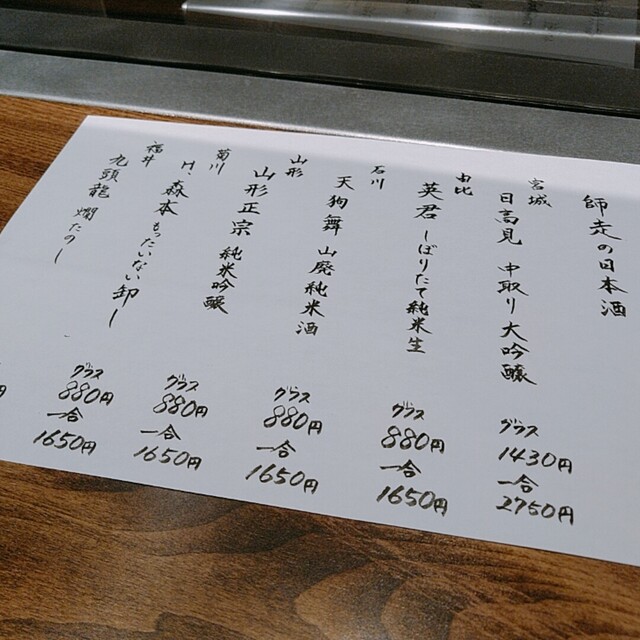 師走の日本酒
宮城
日高見 中取り大吟醸
グラス
1430円
一合
2750円
由比
英君 しぼりたて純米生
グラス
880円
一合
1650円
石川
天狗舞 山廃純米酒
グラス
880円
一合
1650円
山形
山形正宗 純米吟醸
グラス
880円
一合
1650円
菊川
H.森本 もったいない卸し
グラス
880円
一合
1650円
福井
九頭龍 燗たのし
円